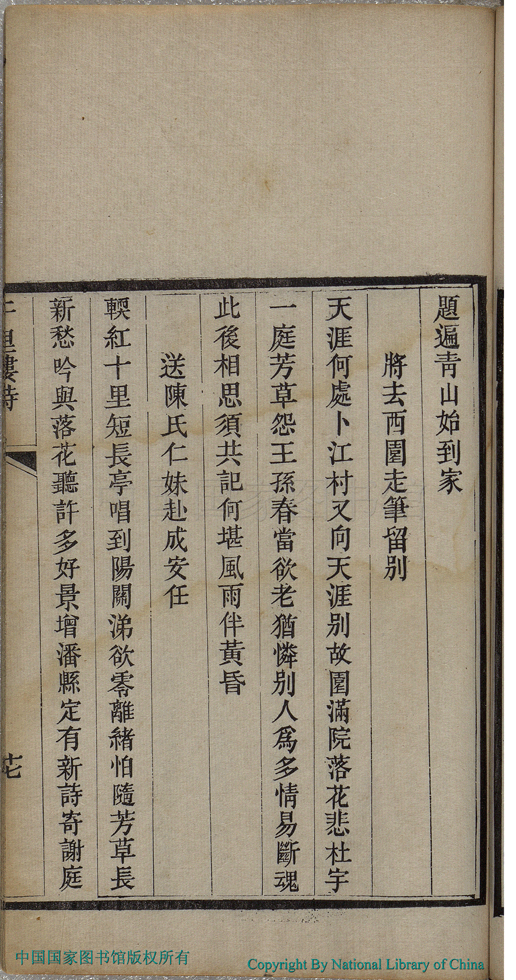 題遍青山始到家
將去西園走筆留別
天涯何處卜江村又向天涯別故園滿院落花悲杜宇
一庭芳草怨王孫春當欲老猶憐別人爲多情易斷魂
此後相思須共記何堪風雨伴黃昏
送陳氏仁妹赴成安任
輭紅十里短長亭唱到陽關涕欲零離緒怕隨芳草長
新愁吟與落花聽許多好景增潘縣定有新詩寄謝庭
里樓詩
七
中国国家图书馆版权所有
Copyright By National Library of China